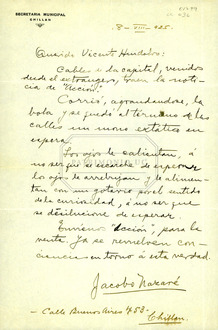 SECRETARIA MUNICIPAL
CHILLAN
8-VIII-925.
Querido Vicente Huidobro:
Cables de la capital, venidos
desde el extranjero, traen la noti-
cia de "Acción".
Corrió, agrandándose, la
bola y se quedó al término de las
calles un mono estático en
espera.
Los ojos le
no ser que se de esperar
los ojos, le y le alimen-
tan con un gotario por el sentido
de la curiosidad, a no ser que
se desilusione de esperar.
Envíenos "Acción", para la
venta. Ya se revuelven con-
ciencias en torno a esta verdad.
Jacobo Nazaré
- Calle Buenos Aires 753 -
Chillán.